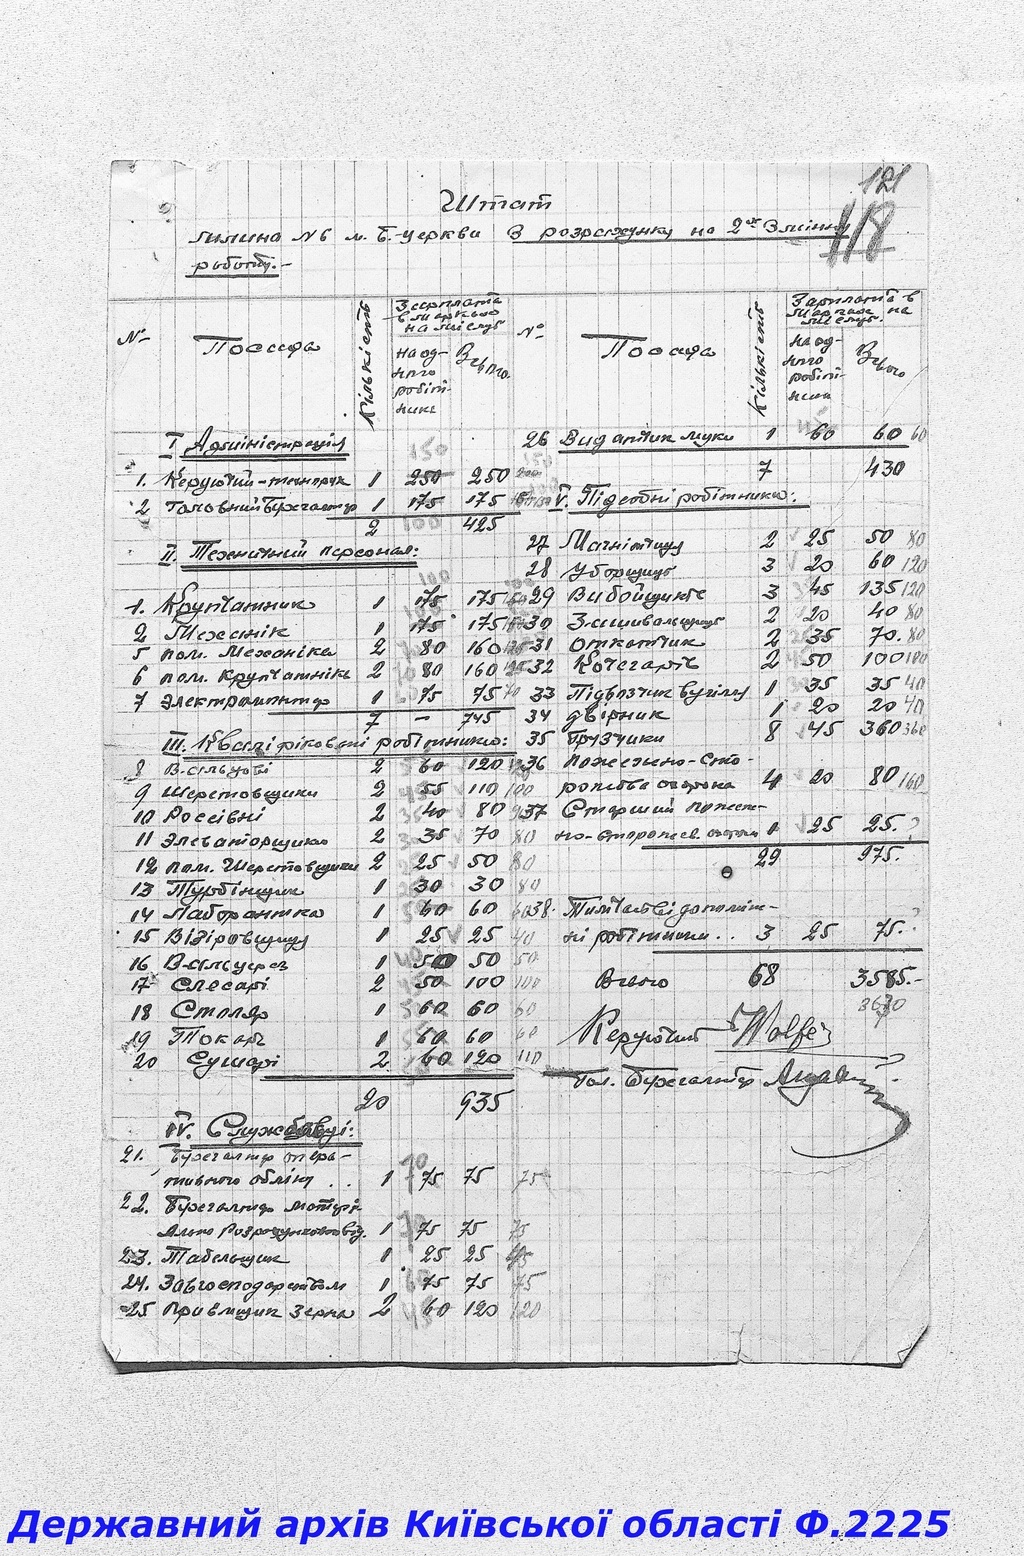 121
118
Штат
млина №6 м. Б-Церкви з розрахунку на 2ох змінну
роботу.-
№
Посада
Кількість
Зарплата
в марках
на місяць
на од-
ного
робіт-
ника
Всього
I Адміністрація
150
1. Керуючий-технорук 1 250 250 200
2 Головний Бухгалтер 1 175 175 150
2 100 425
II. Технічний персонал:
100
1. Крупчатник 1 175 175 150
2 Механік 1 175 175 150
5 пом. Механіка 2 80 160
6 пом. Крупчатніка 2 80 160
7 Электромонтер 1 75 75 70
7 - 745
III. Кваліфіковані робітники:
8 Вальцеві 2 60 120
9 Шеретовщики 2 55 110 100
10 Россівні 2 40 80
11 Элеваторщики 2 35 70 80
12 пом. Шеретовщика 2 25 50 80
13 Турбінщик 1 30 30 80
14 Лаборантка 1 60 60 60
15 Візіровщиця 1 25 25 40
16 Вальцерез 1 50 50 50
17 Слесарі 2 50 100 100
18 Столяр 1 60 60 60
19 Токарь 1 60 60 60
20 Сушарі 2 60 120 110
20 935
IV. Службовці:
21. Бухгалтер опера-
тивного обліку .. 1 70 75 75 75
22. Бухгалтер матері-
1 70 75 75 75
23. Табельщик 1 25 25 45
24. Завгосподарством 1 75 75 75
25 Приємщик зерна 2 45 60 120 120
№
Посада
Кількість
Зарплата в
марках на
місяць
на од-
ного
робіт-
ника
Всього
26 Видатчик муки 1 60 60 60
7 430
V. Підсобні робітники:
27 Магнітчиця 2 25 50 80
28 Уборщиця 3 20 60 120
29 Вибойщики 3 45 135 120
30 Зашивальщиця 2 20 40 80
31 Откатчик 2 35 70. 80
32 Кочегарів 2 50 100 180
33 Підвозчик вугілля 1 35 35 40
34 двірник 1 20 20 40
35 Грузчики 8 45 360 360
36 пожежно-сто-
рожева охорона 4 20 80 160
37 Старший пожеж-
но-сторожев. охорони 1 25 25. ?
29 975.
38. Тимчасові допоміж-
ні робітники .. 3 25 75. ?
Всього 68 3585.-
3670
Керуючий Wolfer
Гол. Бухгалтер
Державний архів Київської області Ф.2225